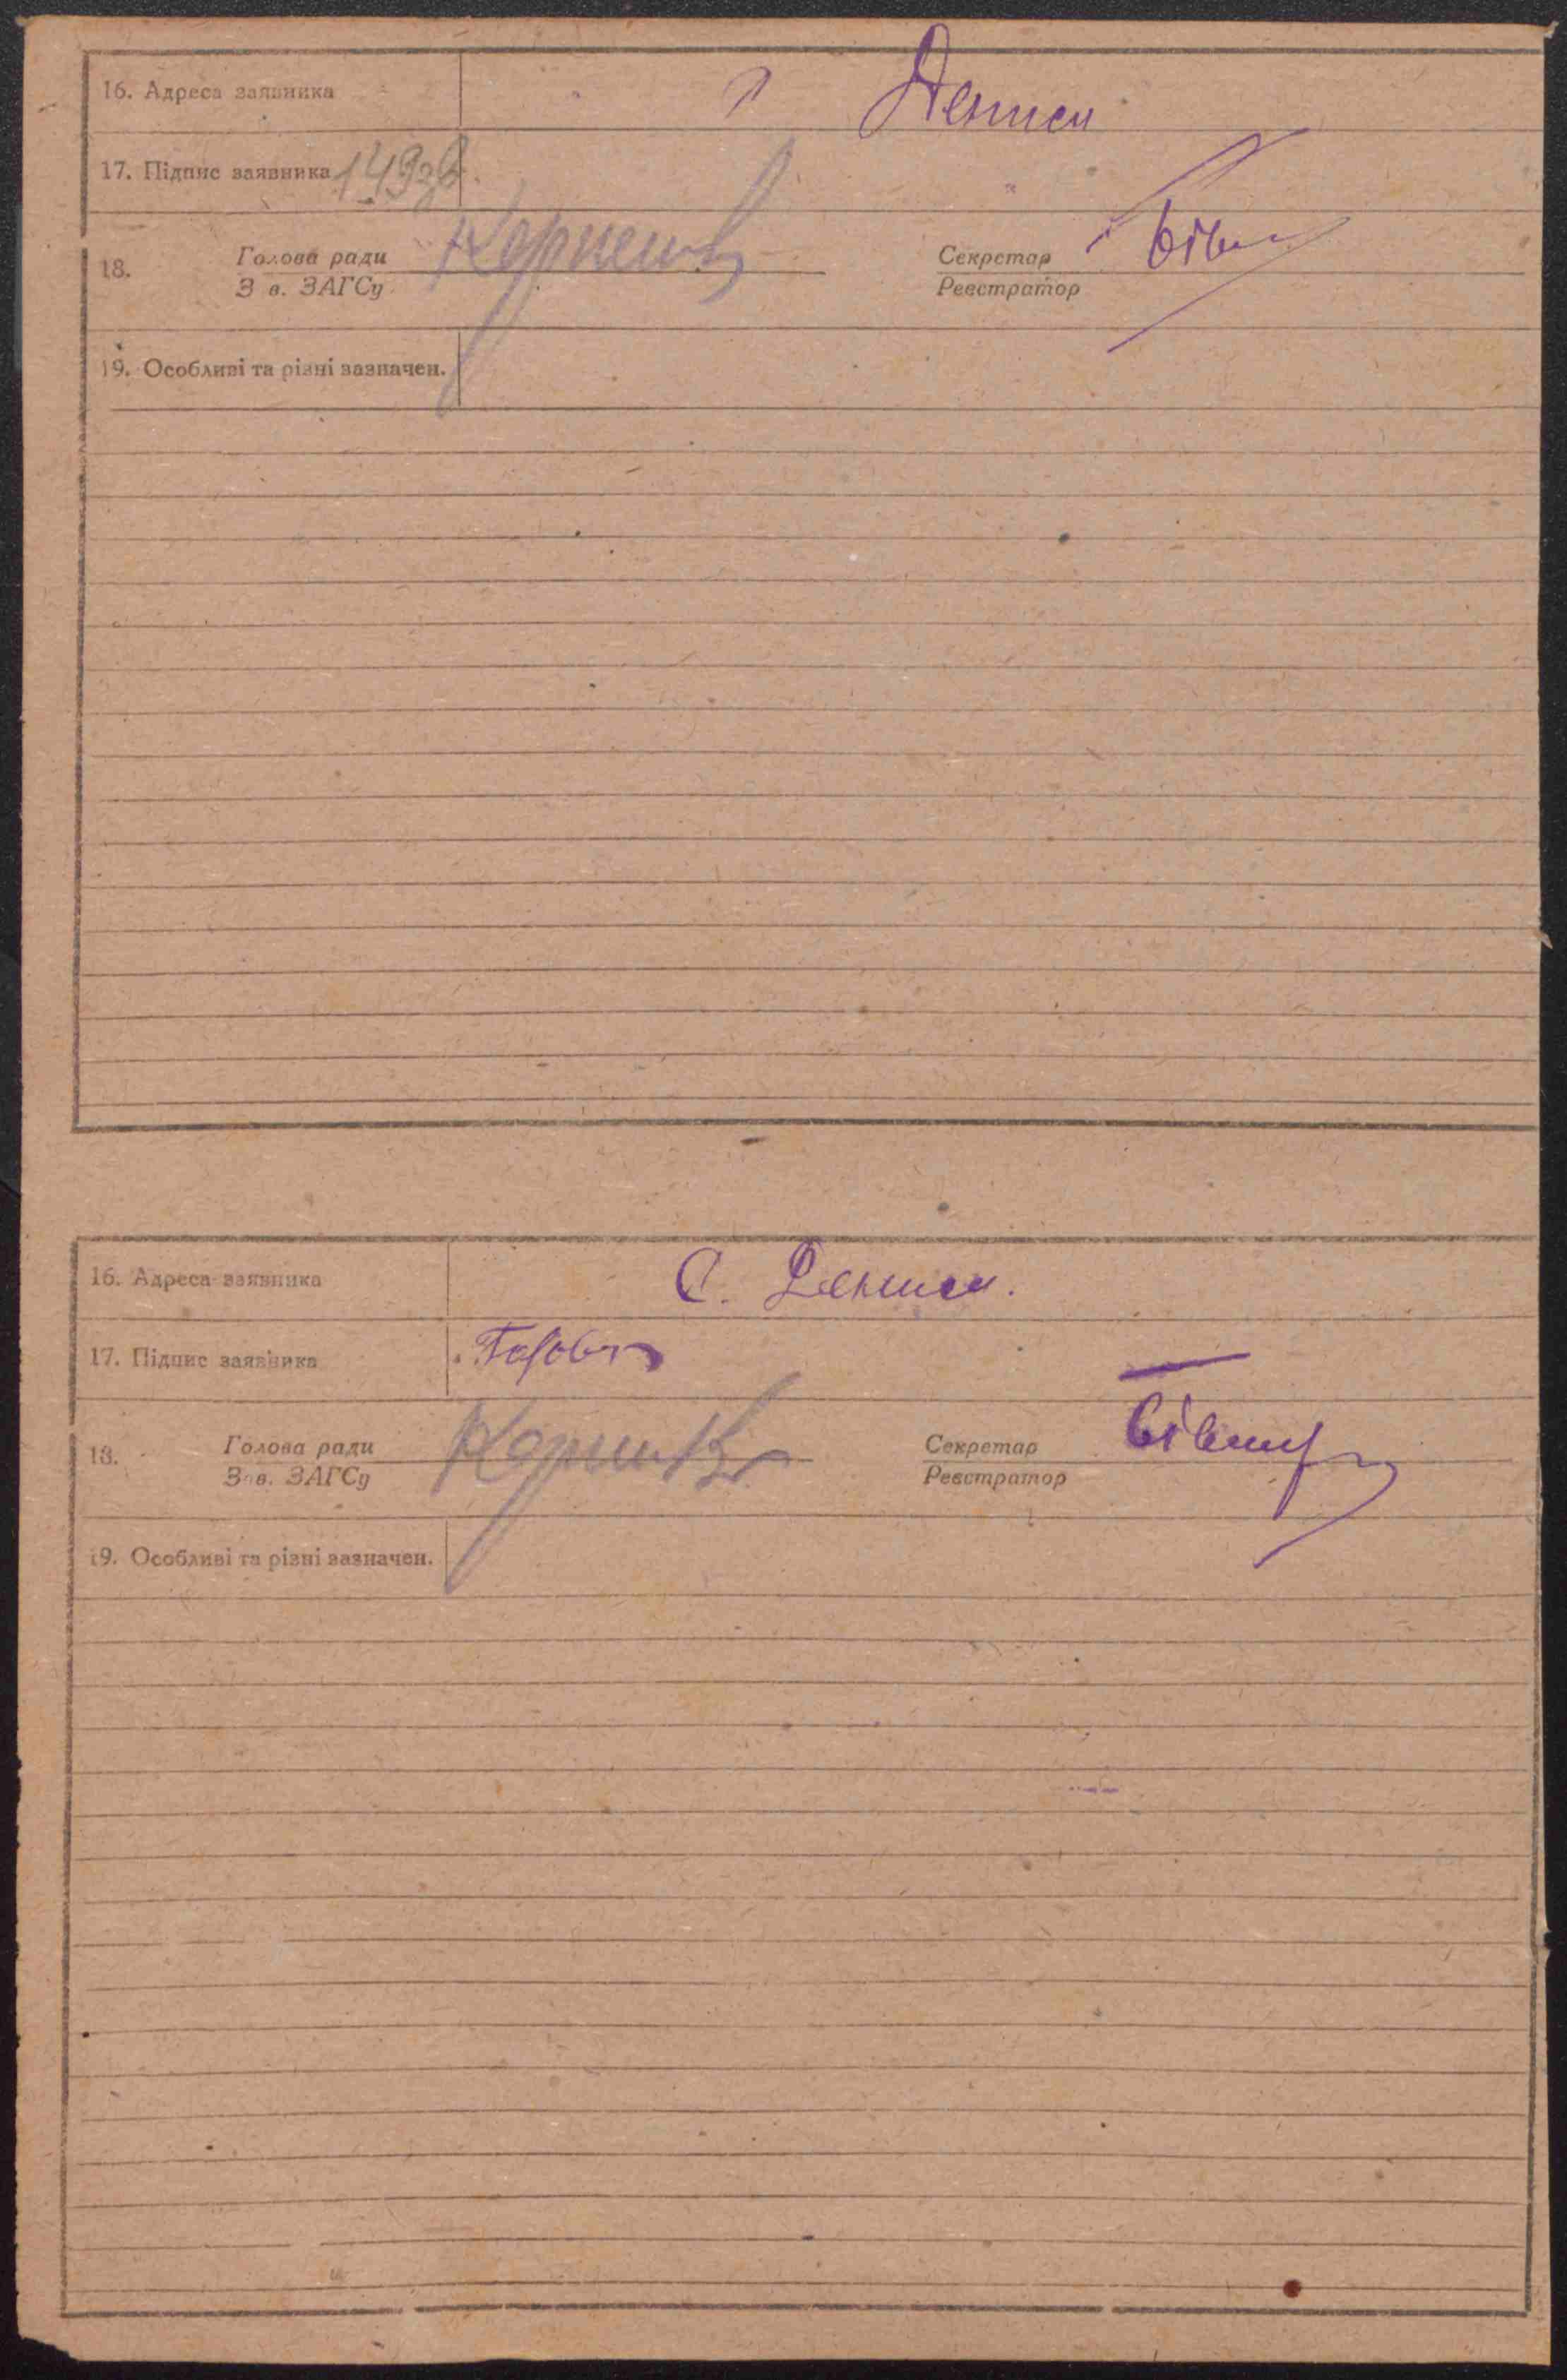 16. Адреса заявника с Дениси
17. Підпис заявника
18. Голова ради Секретар
Зав. ЗАГСу Реєстратор
19. Особливі та різні зазначен.
16. Адреса заявника С. Дениси.
17. Підпис заявника
18. Голова ради Секретар
Зав. ЗАГСу Реєстратор
19. Особливі та різні зазначен.